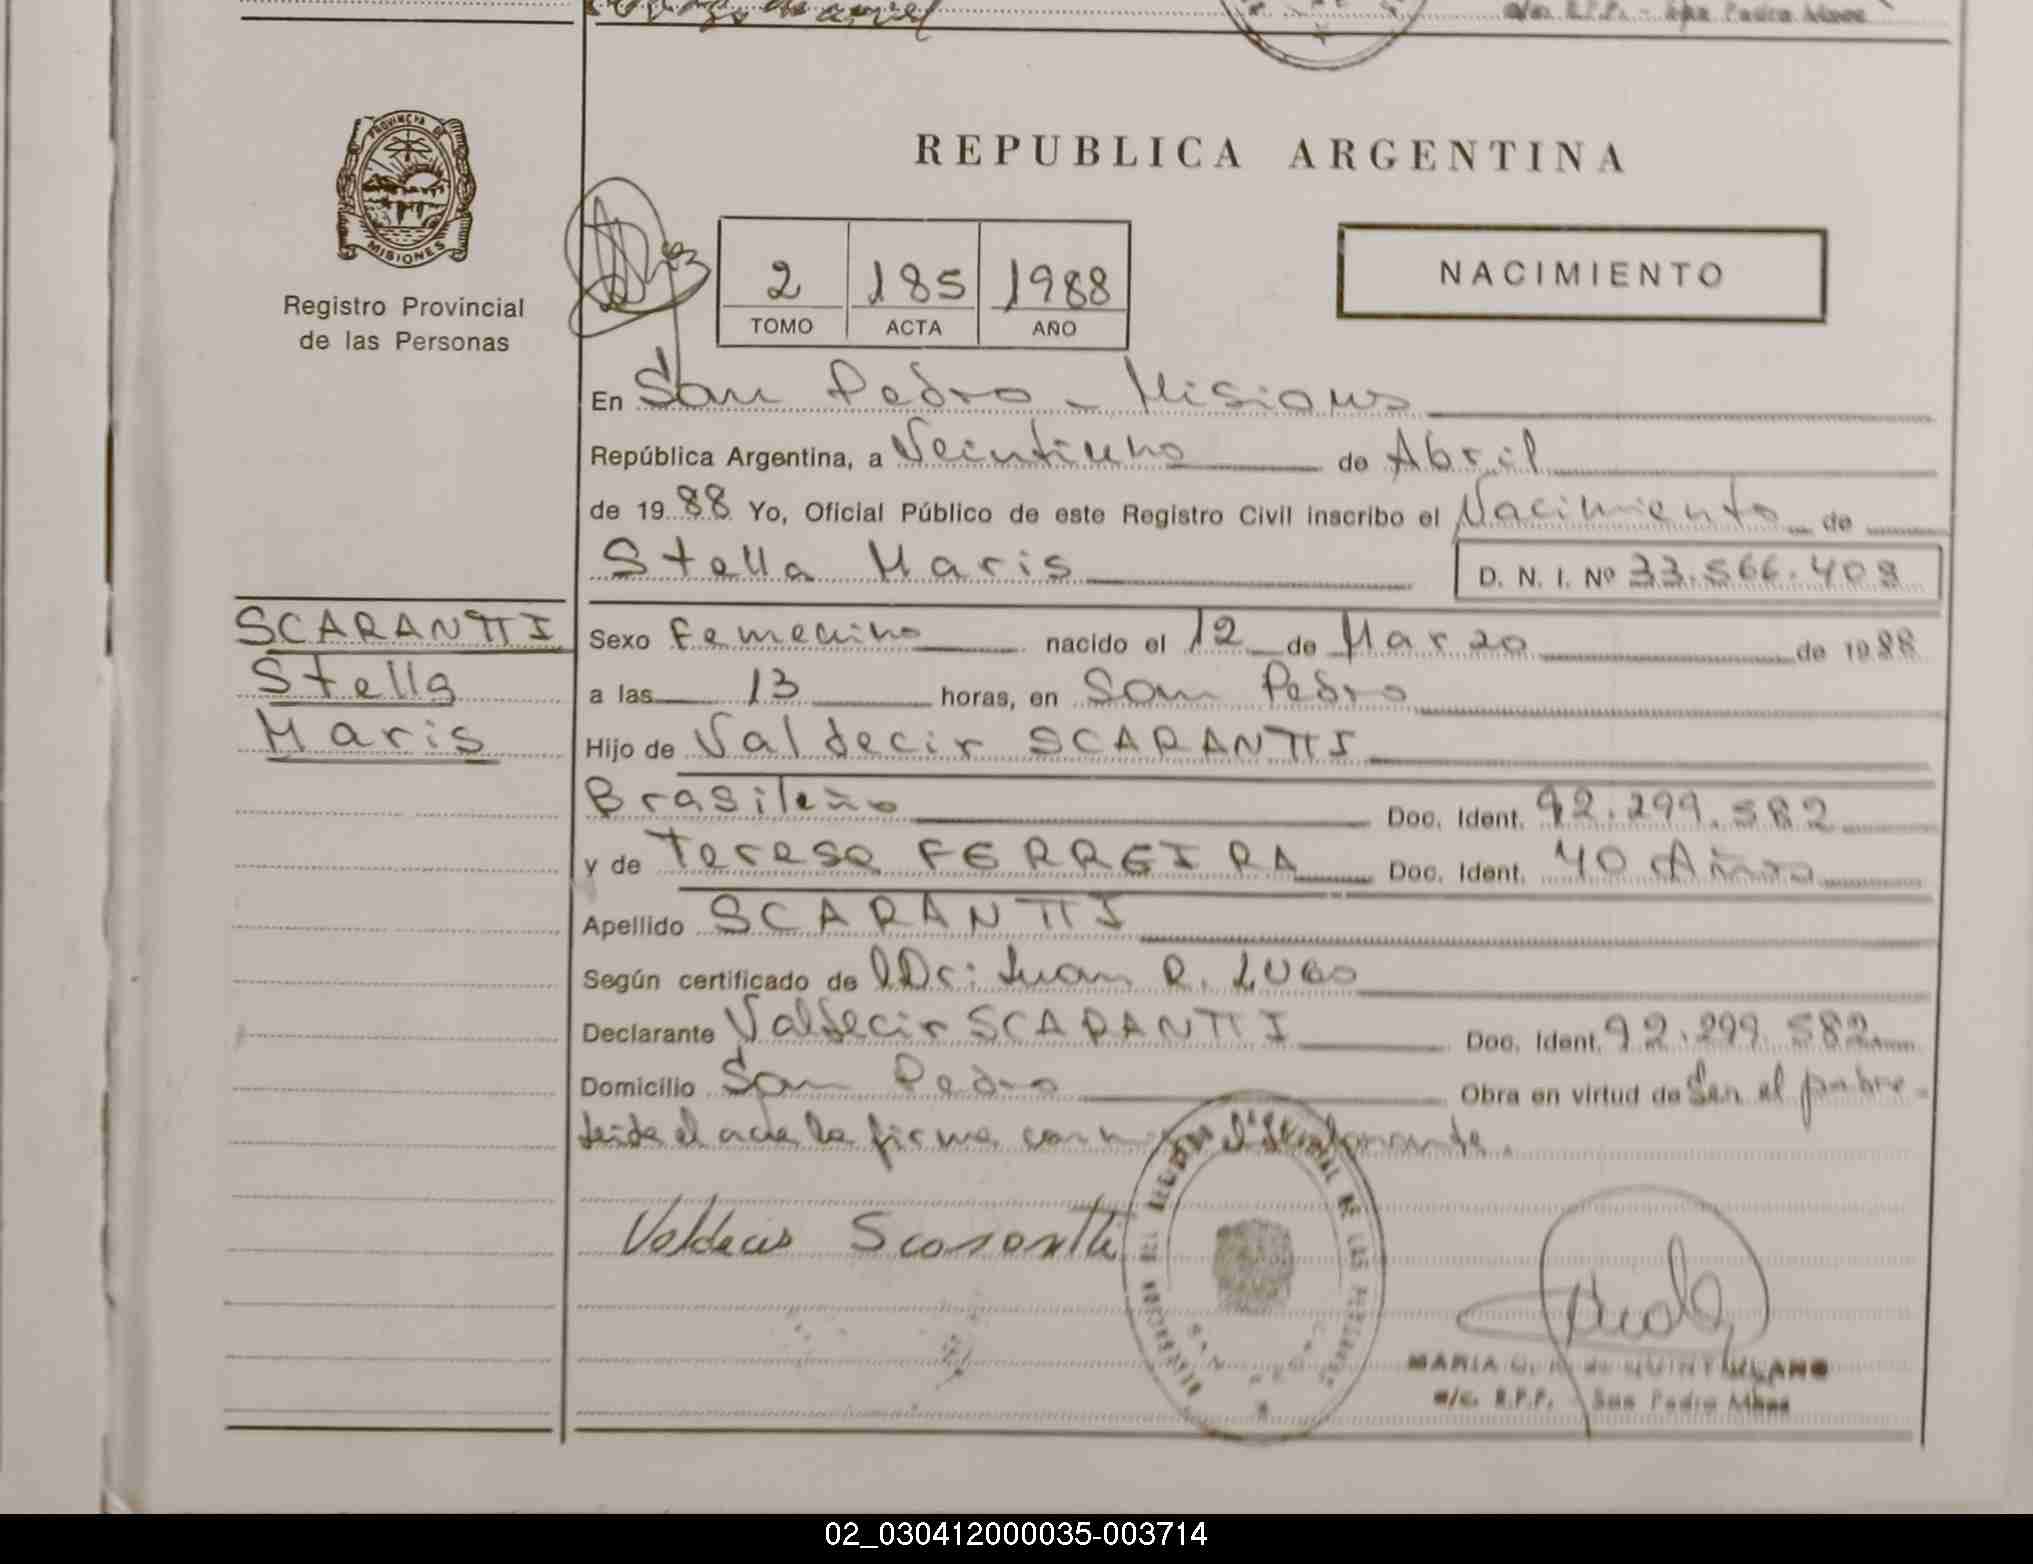 a/c. R.P.P. - San Pedro Mnes
PROVINCIA DE
MISIONES
Registro Provincial
de las Personas
REPUBLICA ARGENTINA
2 185 1988
TOMO ACTA AÑO
NACIMIENTO
En San Pedro - Misiones
República Argentina, a Veintiuno de Abril
de 1988 Yo, Oficial Público de este Registro Civil inscribo el Nacimiento de
Stella Maris D. N. I. Nº 33.566.409
SCARANTTI
Stella
Maris
Sexo Femenino nacido el 12 de Marzo de 1988
a las 13 horas, en San Pedro
Hijo de Valdecir SCARANTTI
Brasileño Doc. Ident. 92.299.582
y de Teresa FERREIRA Doc. Ident. 40 Años
Apellido SCARANTTI
Según certificado de Dr: Juan R. LUGO
Declarante Valdecir SCARANTTI Doc. Ident. 92.299.582
Domicilio San Pedro Obra en virtud de Ser el padre-
leida el acta la firma conmigo el declarante.
Valdecir Scarantti
MARIA de QUINTANA
a/c. R.P.P. - San Pedro Mnes
02_030412000035-003714